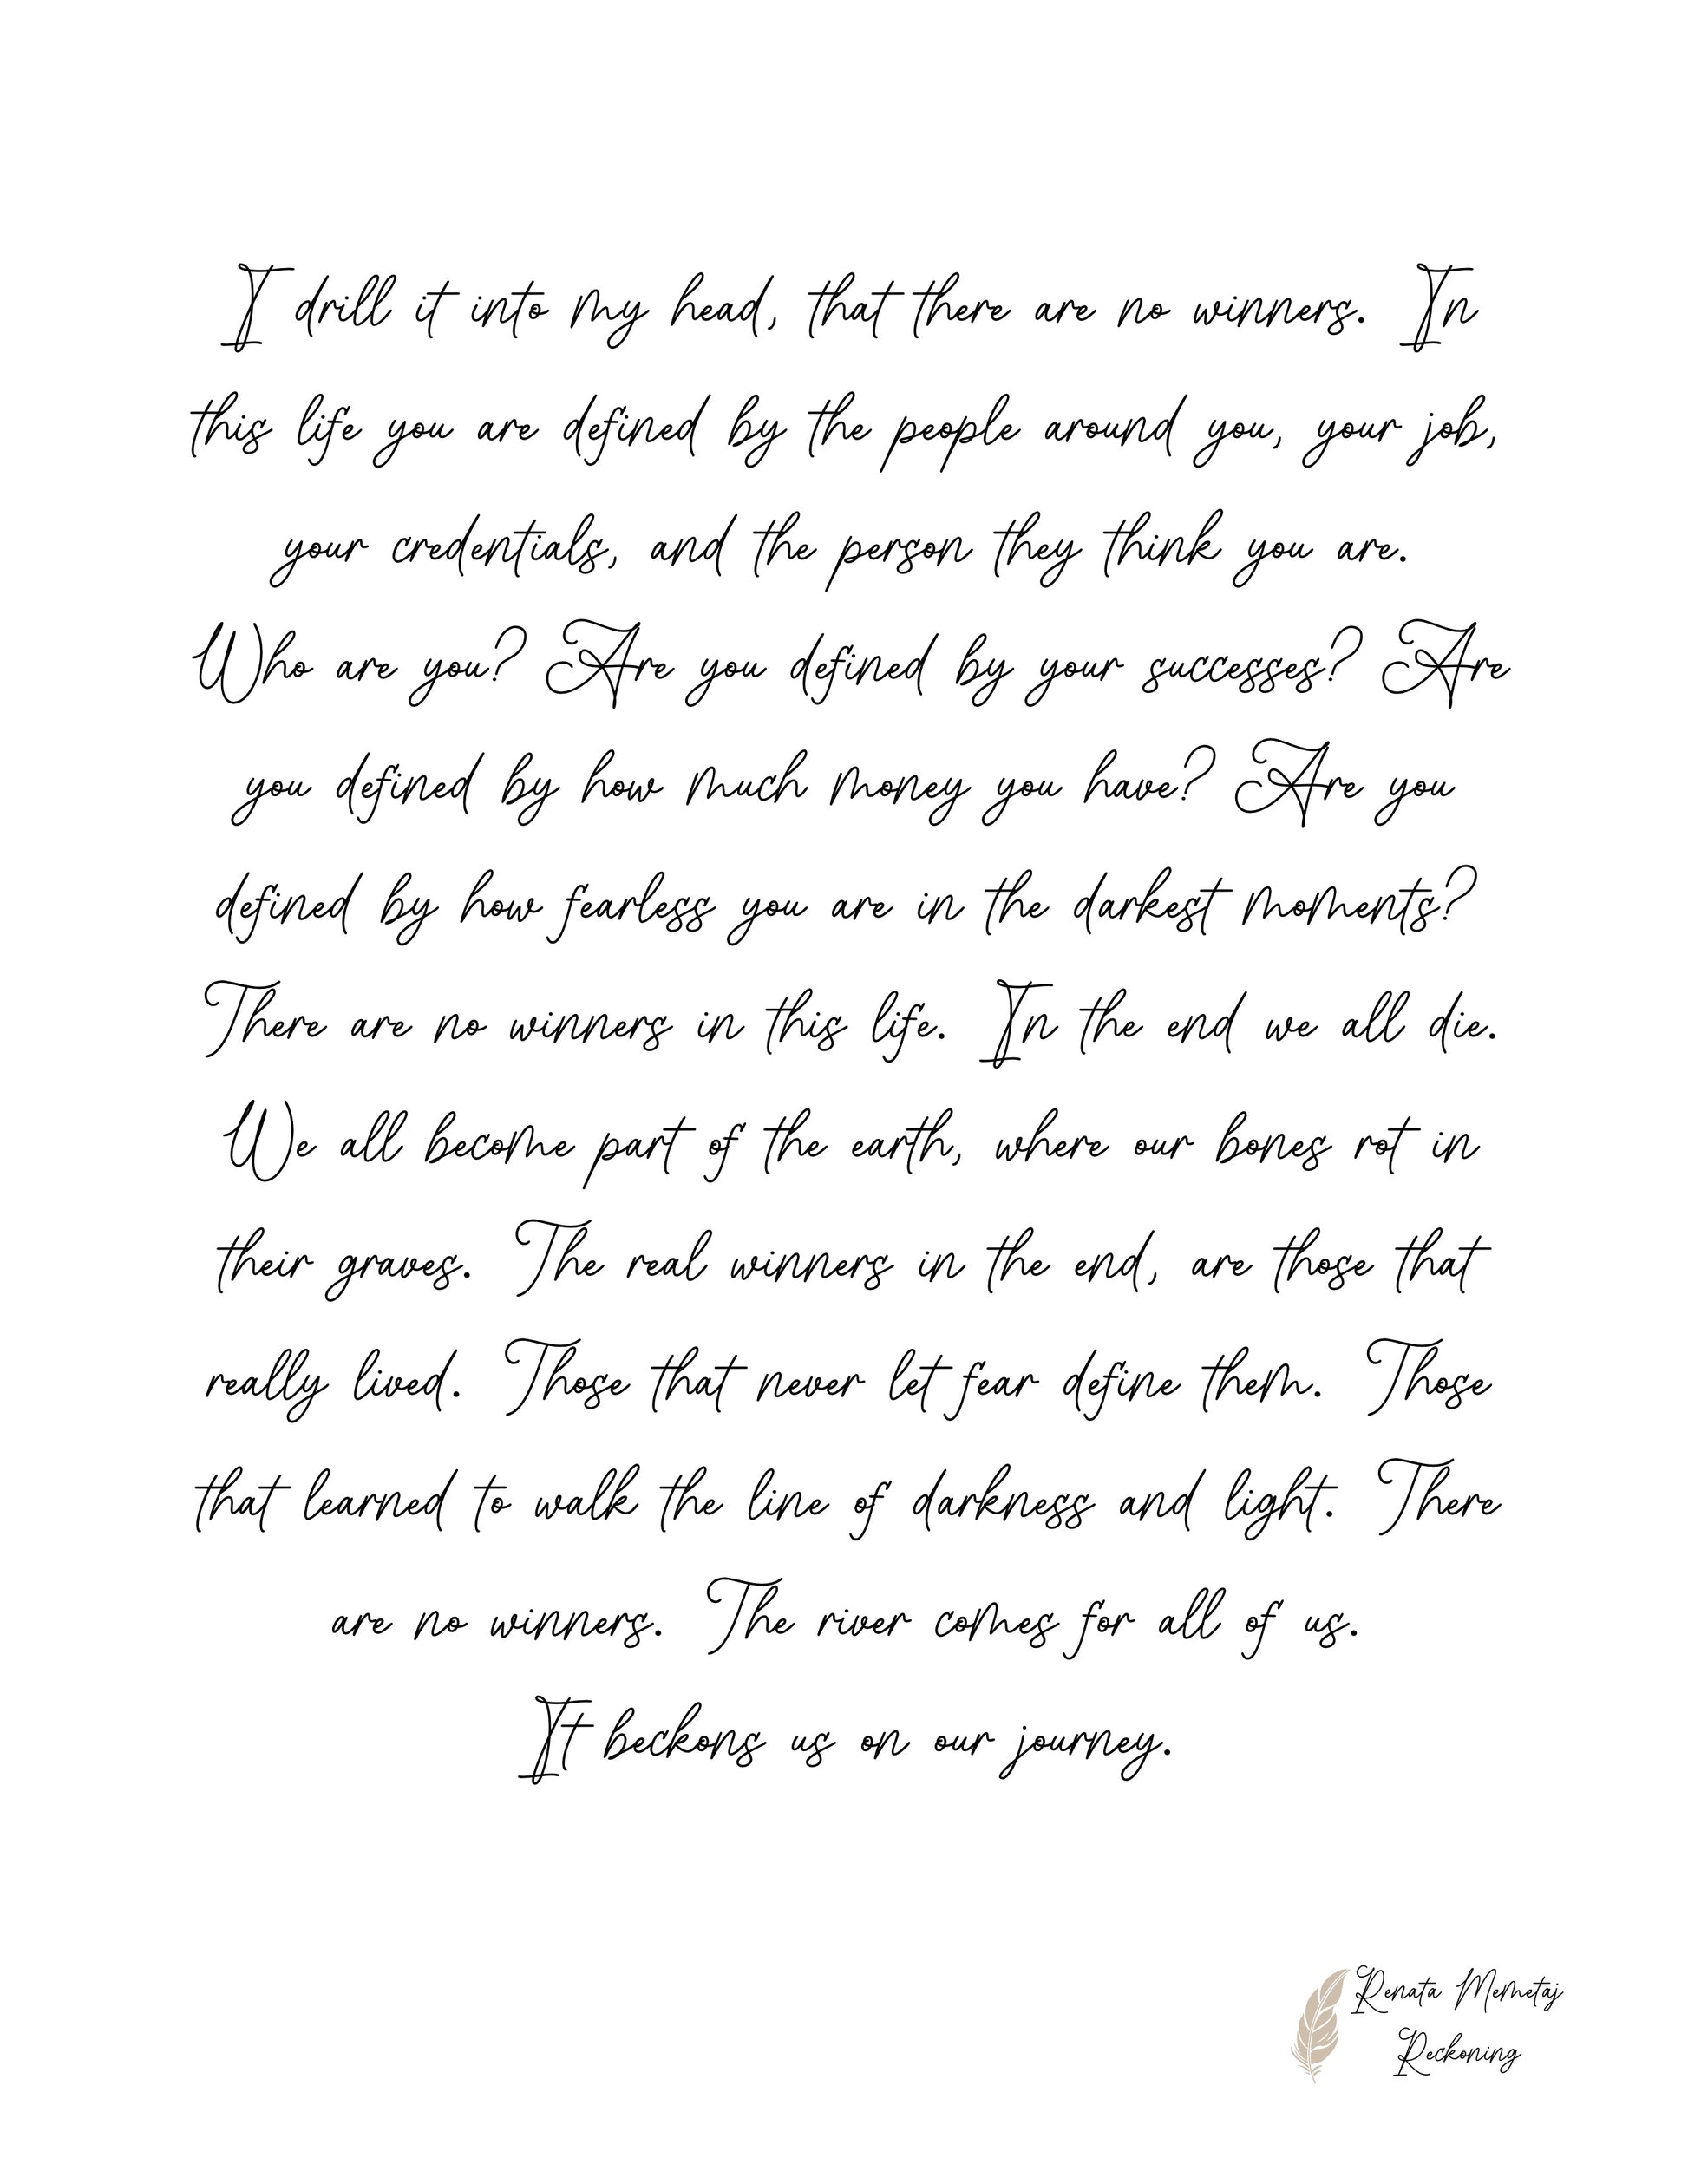 I drill it into my head, that there are no winners. In
this life you are defined by the people around you, your job,
your credentials, and the person they think you are.
Who are you? Are you defined by your successes? Are
you defined by how much money you have? Are you
defined by how fearless you are in the darkest moments?
There are no winners in this life. In the end we all die.
We all become part of the earth, where our bones rot in
their graves. The real winners in the end, are those that
really lived. Those that never let fear define them. Those
that learned to walk the line of darkness and light. There
are no winners. The river comes for all of us.
It beckons us on our journey.
Renata Memetaj
Reckoning